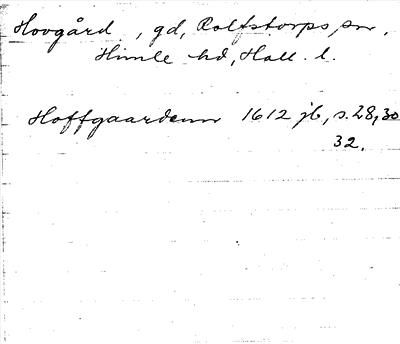 Hovgård , gd, Rolfstorps sn,
Himle hd, Hall. l.
Hoffgaardenn 1612 jb, s. 28, 30
32.